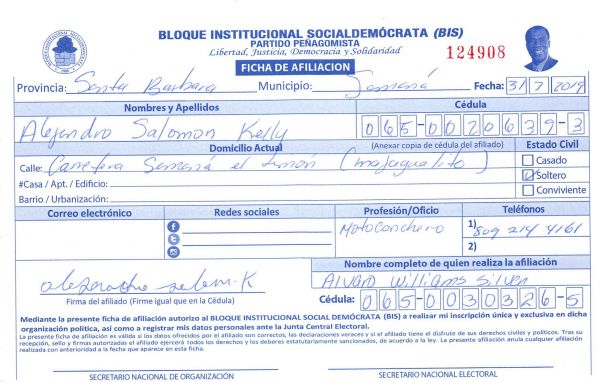 BLOQUE INSTITUCIONAL SOCIALDEMÓCRATA (BIS)
PARTIDO PEÑAGOMISTA
Libertad, Justicia, Democracia y Solidaridad
124908
FICHA DE AFILIACION
Provincia: Santa Barbara Municipio: Samaná Fecha: 31/7/2019
Nombres y Apellidos Cédula
Alejandro Salomon Kelly 065-0020639-3
Domicilio Actual (Anexar copia de cédula del afiliado) Estado Civil
Calle: Carretera Samaná el Limon (majagualito) Casado
#Casa / Apt. / Edificio: Soltero
Barrio / Urbanización: Conviviente
Correo electrónico Redes sociales Profesión/Oficio Teléfonos
Motoconchero 1) 809 214 4161
2)
Nombre completo de quien realiza la afiliación
Alvaro Williams Silven
Firma del afiliado (Firme igual que en la Cédula) Cédula: 065-0030326-5
Mediante la presente ficha de afiliación autorizo al BLOQUE INSTITUCIONAL SOCIAL DEMÓCRATA (BIS) a realizar mi inscripción única y exclusiva en dicha
organización política, así como a registrar mis datos personales ante la Junta Central Electoral.
La presente ficha de afiliación es válida si los datos ofrecidos por el afiliado son correctos, las declaraciones veraces y si el afiliado tiene el disfrute de sus derechos civiles y políticos. Tras su
recepción, sello y firmas autorizadas el afiliado ejercerá todos los derechos y los deberes estatutariamente sancionados, de acuerdo a la ley. La presente afiliación anula cualquier afiliación
realizada con anterioridad a la fecha que aparece en esta ficha.
SECRETARIO NACIONAL DE ORGANIZACIÓN SECRETARIO NACIONAL ELECTORAL